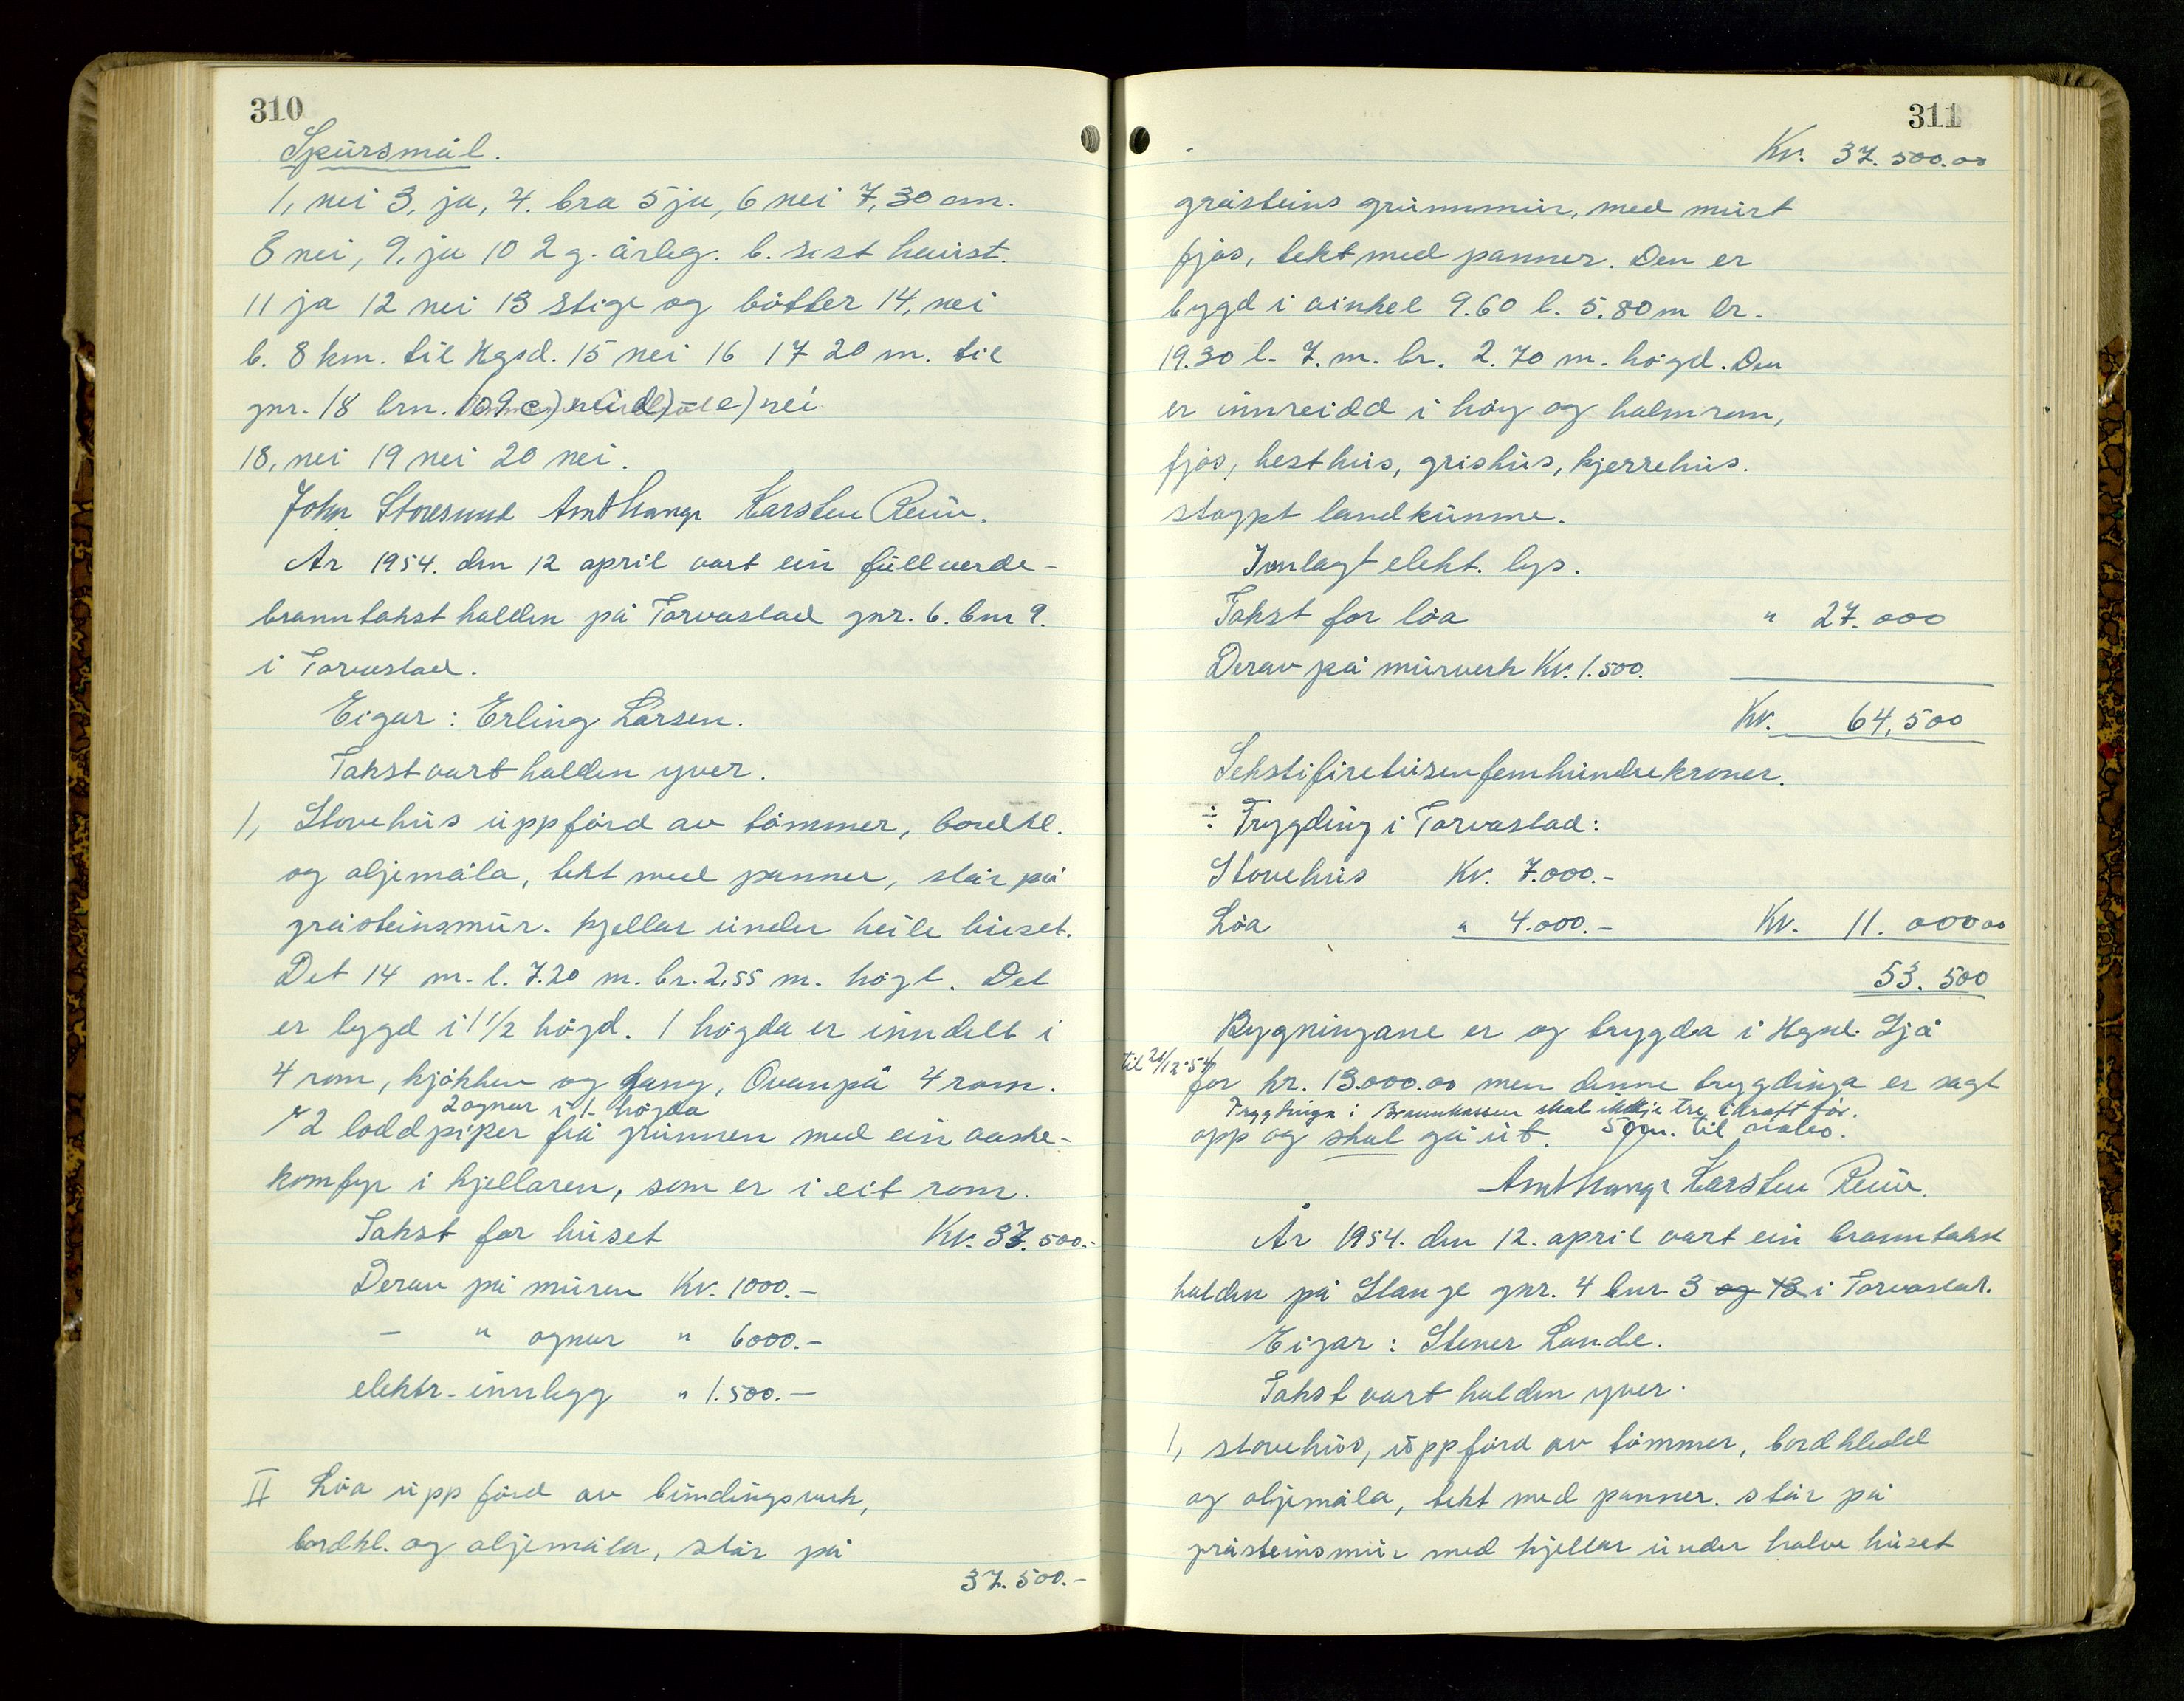 310
Spursmål.
1, nei 3, ja, 4. bra 5 ja, 6 nei 7, 30 cm.
8 nei, 9, ja 10 2 g. årleg. b. sist haust.
11 ja 12 nei 13 stige og bötter 14, nei
b. 8 km. til Hgsd. 15 nei 16 17 20 m. til
gnr. 18 brn. c) nei d) e) nei
18, nei 19 nei 20 nei.
John Storesund Karsten
År 1954. den 12 april vart ein fullverde-
branntakst halden på Torvastad gnr. 6. bnr 9.
i Torvastad.
Eigar: Erling Larsen.
Takst vart halden yver.
1, Stovehus uppförd av tömmer, bordkl.
og oljemåla, tekt med panner, står på
gråsteinsmur. kjellar under heile huset.
Det 14 m. l. 7.20 m. br. 2,55 m. högt. Det
er bygd i 1 1/2 högd. 1 högda er inndelt i
4 rom, kjökken og gang, Ovanpå 4 rom.
2 ognar i 1. högda
2 loddpiper frå grunnen med ein vaske-
komfyr i kjellaren, som er i eit rom.
Takst for huset Kr. 37.500.-
Derav på muren Kr. 1000.-
- " ognar " 6000.-
elektr. innlegg " 1.500.-
II Löa uppförd av bindingsverk,
bordkl. og oljemåla, står på
37.500.-
311
Kr. 37.500.00
gråsteins grunnmur, med murt
fjös, tekt med panner. Den er
bygd i vinkel 9.60 l. 5.80 m br.
19.30 l. 7. m. br. 2.70 m. högd. Den
er innreidd i höy og halmrom,
fjös, hesthus, grishus, kjerrehus.
stöypt landkumme.
Innlagt elekt. lys.
Takst for löa " 27.000
Derav på murverk Kr. 1.500.
Kr. 64,500
Sekstifiretusenfemhundrekroner.
÷ Trygding i Torvastad:
Stovehus Kr. 7.000.-
Löa " 4.000.- Kr. 11.000 00
53.500
Bygningane er og trygda i Hgsd. Sjö
til 21/12-54
for kr. 13.000.00 men denne trygdinga er sagt
Trygdinga i Brannkassen skal ikkje tre i kraft för.
opp og skal gå ut. 50 m. til nabo.
Karsten
År 1954. den 12. april vart ein branntakst
halden på Stange gnr. 4 bnr. 3 og 13 i Torvastad.
Eigar: Stener Lande.
Takst vart halden yver.
1, stovehus, uppförd av tömmer, bordkledd
og oljemåla, tekt med panner. står på
gråsteinsmur med kjellar under halve huset